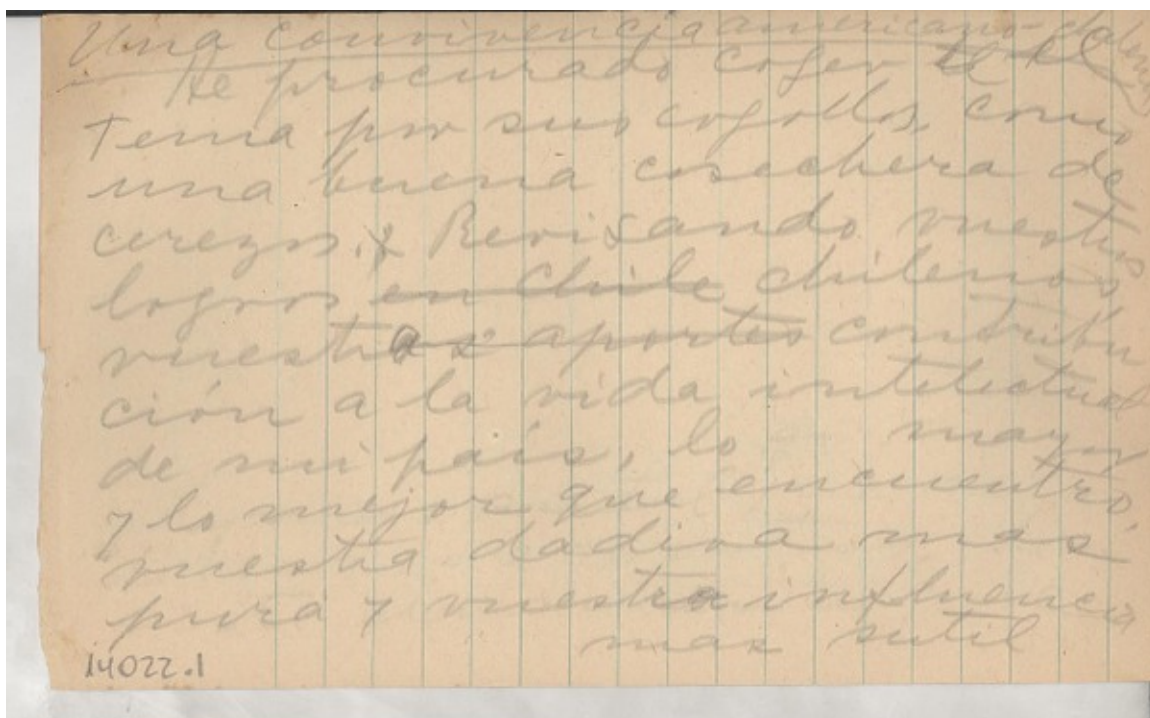 Una convivencia americano-
He procurado coger el
tema por sus cogollos, como
una buena cosechera de
cerezos. Revisando vuestros
logros en Chile chilenos,
vuestras aportes contribu
ción a la vida intelectual
de mi país, lo mayor
y lo mejor que encuentro,
vuestra dadiva mas
pura y vuestra influencia
mas sutil
14022.1